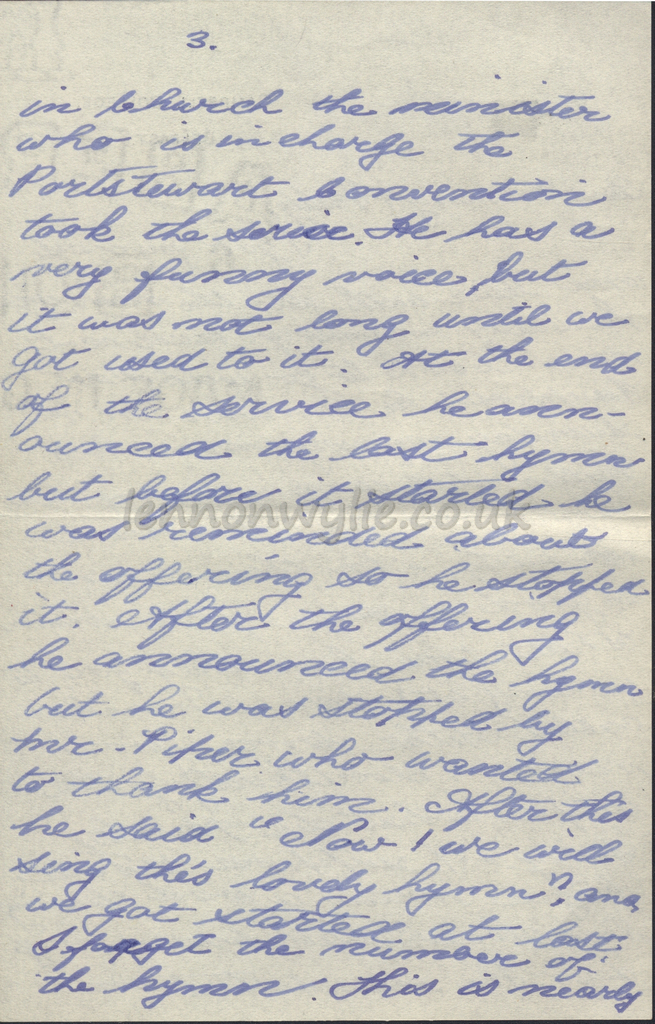 3.
in Church the minister
who is in charge the
Portstewart Convention
took the serice. He has a
very funny voice, but
it was not long until we
got used to it. At the end
of the service he ann-
ounced the last hymn
but before it started he
lennonwylie.co.uk
was reminded about
the offering so he stopped
it. After the offering
he announced the hymn
but he was stopped by
Mr. Piper who wanted
to thank him. After this
he said "Now! we will
sing this lovely hymn", and
we got started at last.
I forget the number of
the hymn. This is nearly